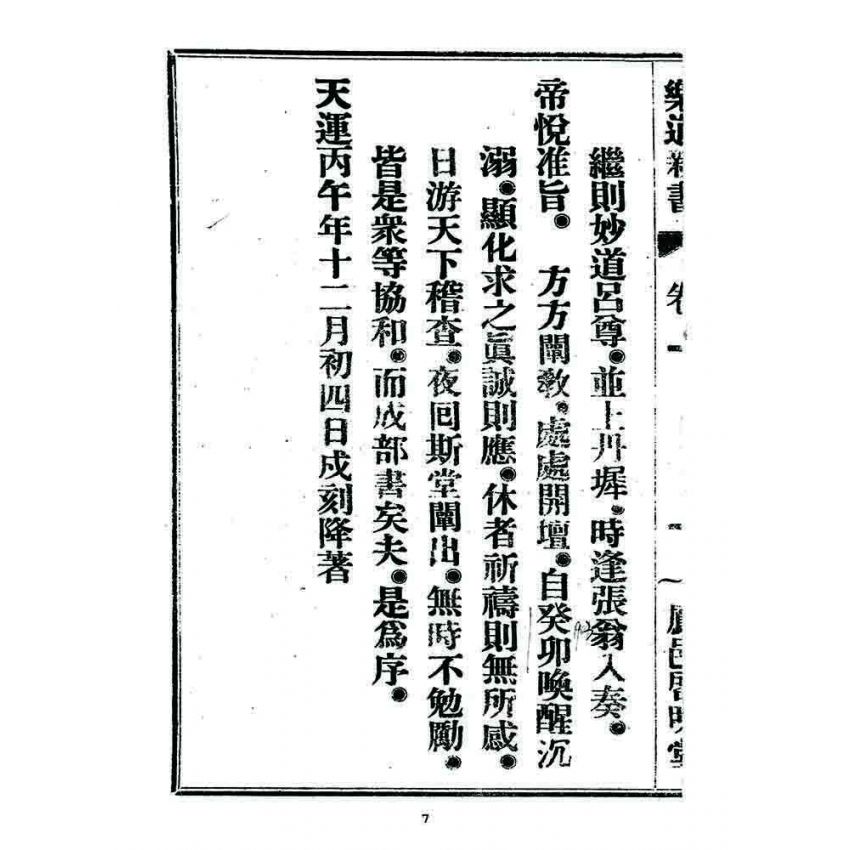 樂道新書 卷一
繼則妙道呂尊。並上丹墀。時逢張翁入奏。
帝悅准旨。 方方闡教。處處開壇。自癸卯喚醒沉
溺。顯化求之眞誠則應。休者祈禱則無所感。
日游天下稽查。夜回斯堂闡出。無時不勉勵。
皆是衆等協和。而成部書矣夫。是爲序。
天運丙午年十二月初四日戌刻降著
7